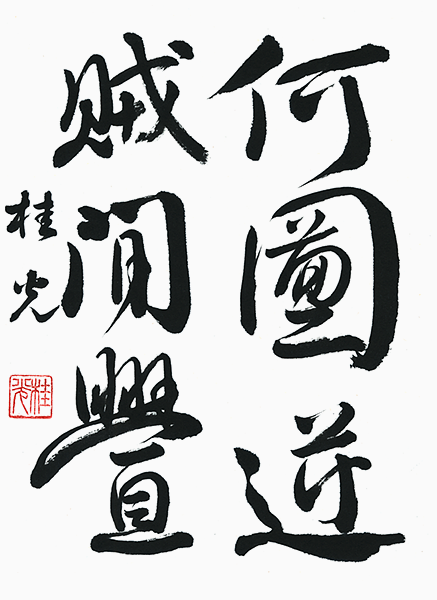 何圖逆
賊閒舋
桂光
桂光